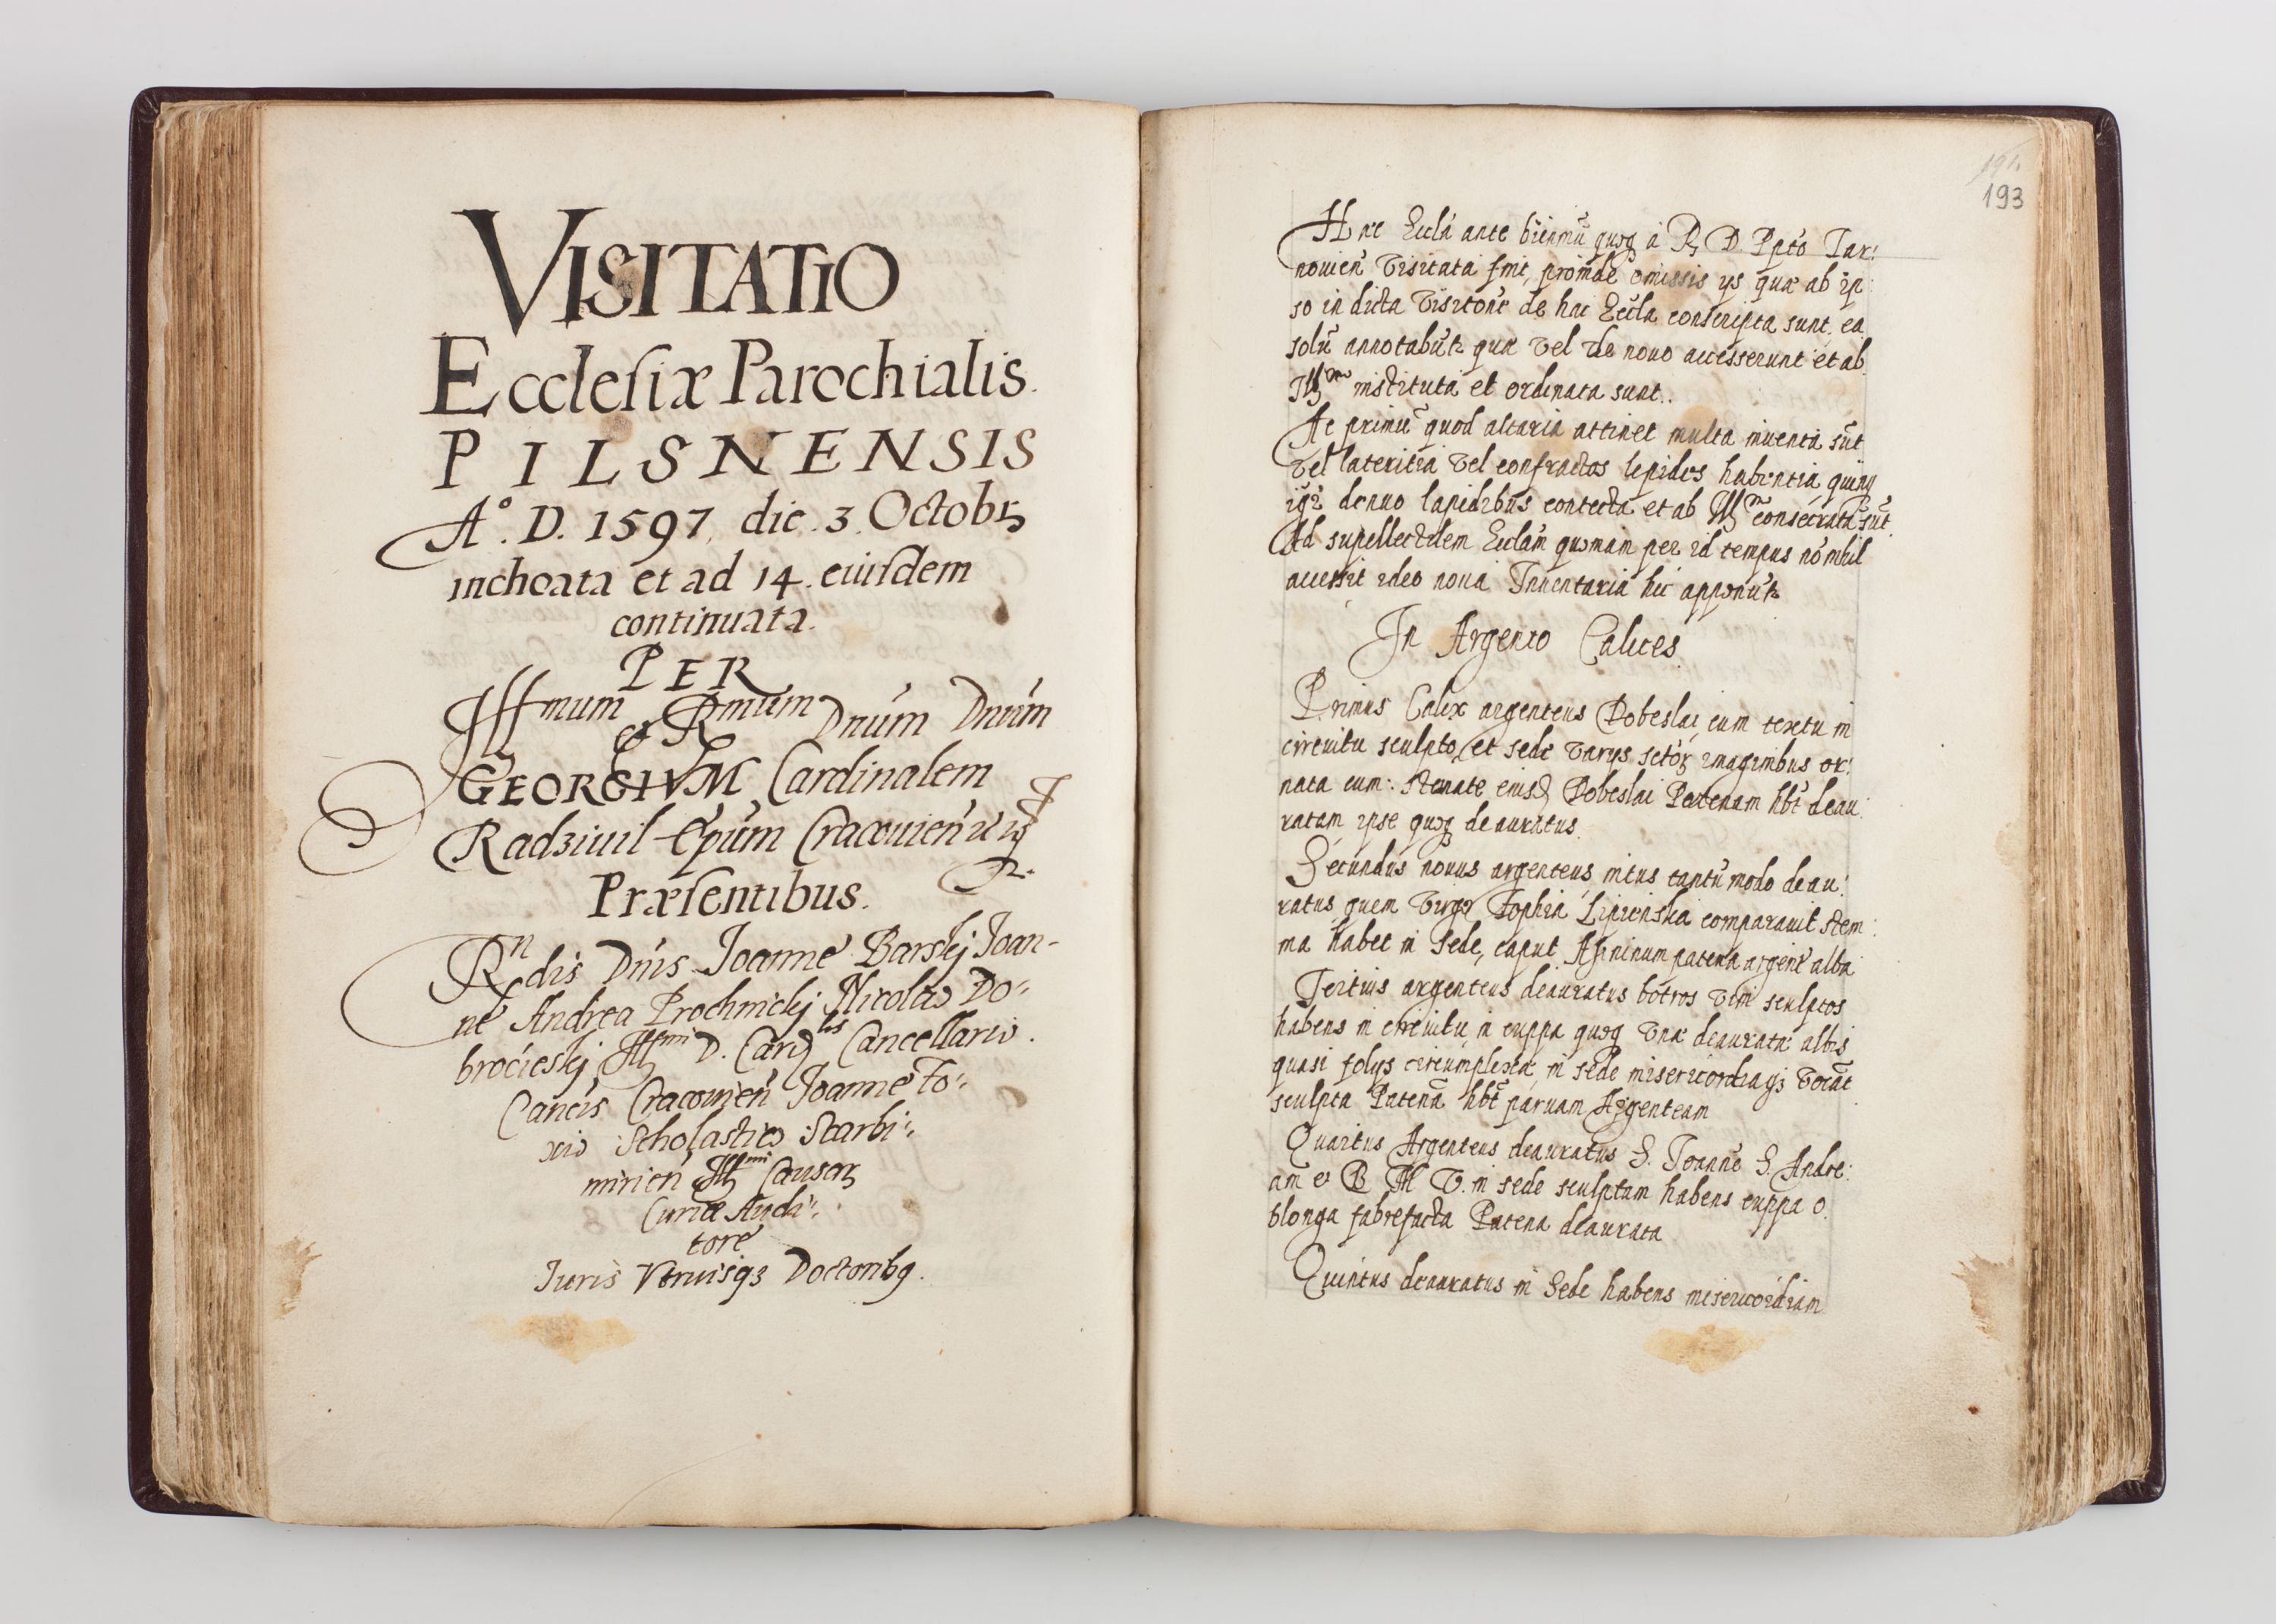 VISITATIO
Ecclesiæ Parochialis.
PILSNENSIS
A°. D. 1597, die. 3. Octobr
inchoata et ad 14. eiusdem
continuata.
PER
Illmum et Rmum Dnum Dnum
GEORGIVM Cardinalem
Radziuil Epum Cracouien
Præsentibus.
Rndis Dnis Joanne Barskj Joan-
ne Andrea Prochnickj Nicolao Do-
brocieskj Illmi D. Cardlis Cancellario.
Cancis Cracouien Joanne Fo-
xio Scholastico Scarbi-
mirien Illmi Causar
Curiæ Audi-
tore
Juris Vtriusq3 Doctorib9.
191.
193
Hæc Eccla ante bienniũ quoq3 à R. D. Ppto Tar:
nouien visitata fuit, proinde omissis ys quæ ab ip:
so in dicta visitone de hac Eccla conscripta sunt, ea
solũ annotabutr quæ vel de nouo accesserunt et ab
Illmo instituta et ordinata sunt.
Ac primũ quod altaria attinet multa inuenta sũt
vel lateritia vel confractos lapides habentia quinq
denuo lapidibus contecta et ab Illmo consecrata sũt.
Ad supellectilem Ecclam quoniam per id tempus nõ nihil
accessit ideo noua Inuentaria hic apponutr
In Argento Calices.
Primus Calix argenteus Dobeslai, cum textu in
circuitu sculpto, et sede varys sctor imaginibus or:
nata cum stemate eiusd Dobeslai Patenam hbt deau:
ratam ipse quoq3 deauratus.
Secundus nouus argenteus intus tantũ modo deau:
ratus quem virgo Zophia Lipienska comparauit stem:
ma habet in Sede, caput Asininum patena argent alba
Tertius argenteus deauratus botros vini sculptos
habens in circuitu, in cuppa quoq3 vna deaurata albis
quasi folys circumplexa, in sede misericordia q3 vocãt
sculpta Patenã hbt paruam Argenteam
Quartus Argenteus deauratus S. Joanne S. Andre:
am et B M V. in sede sculptam habens cuppa o:
blonga fabrefacta Patena deaurata
Quintus deauratus in Sede habens misericordiam